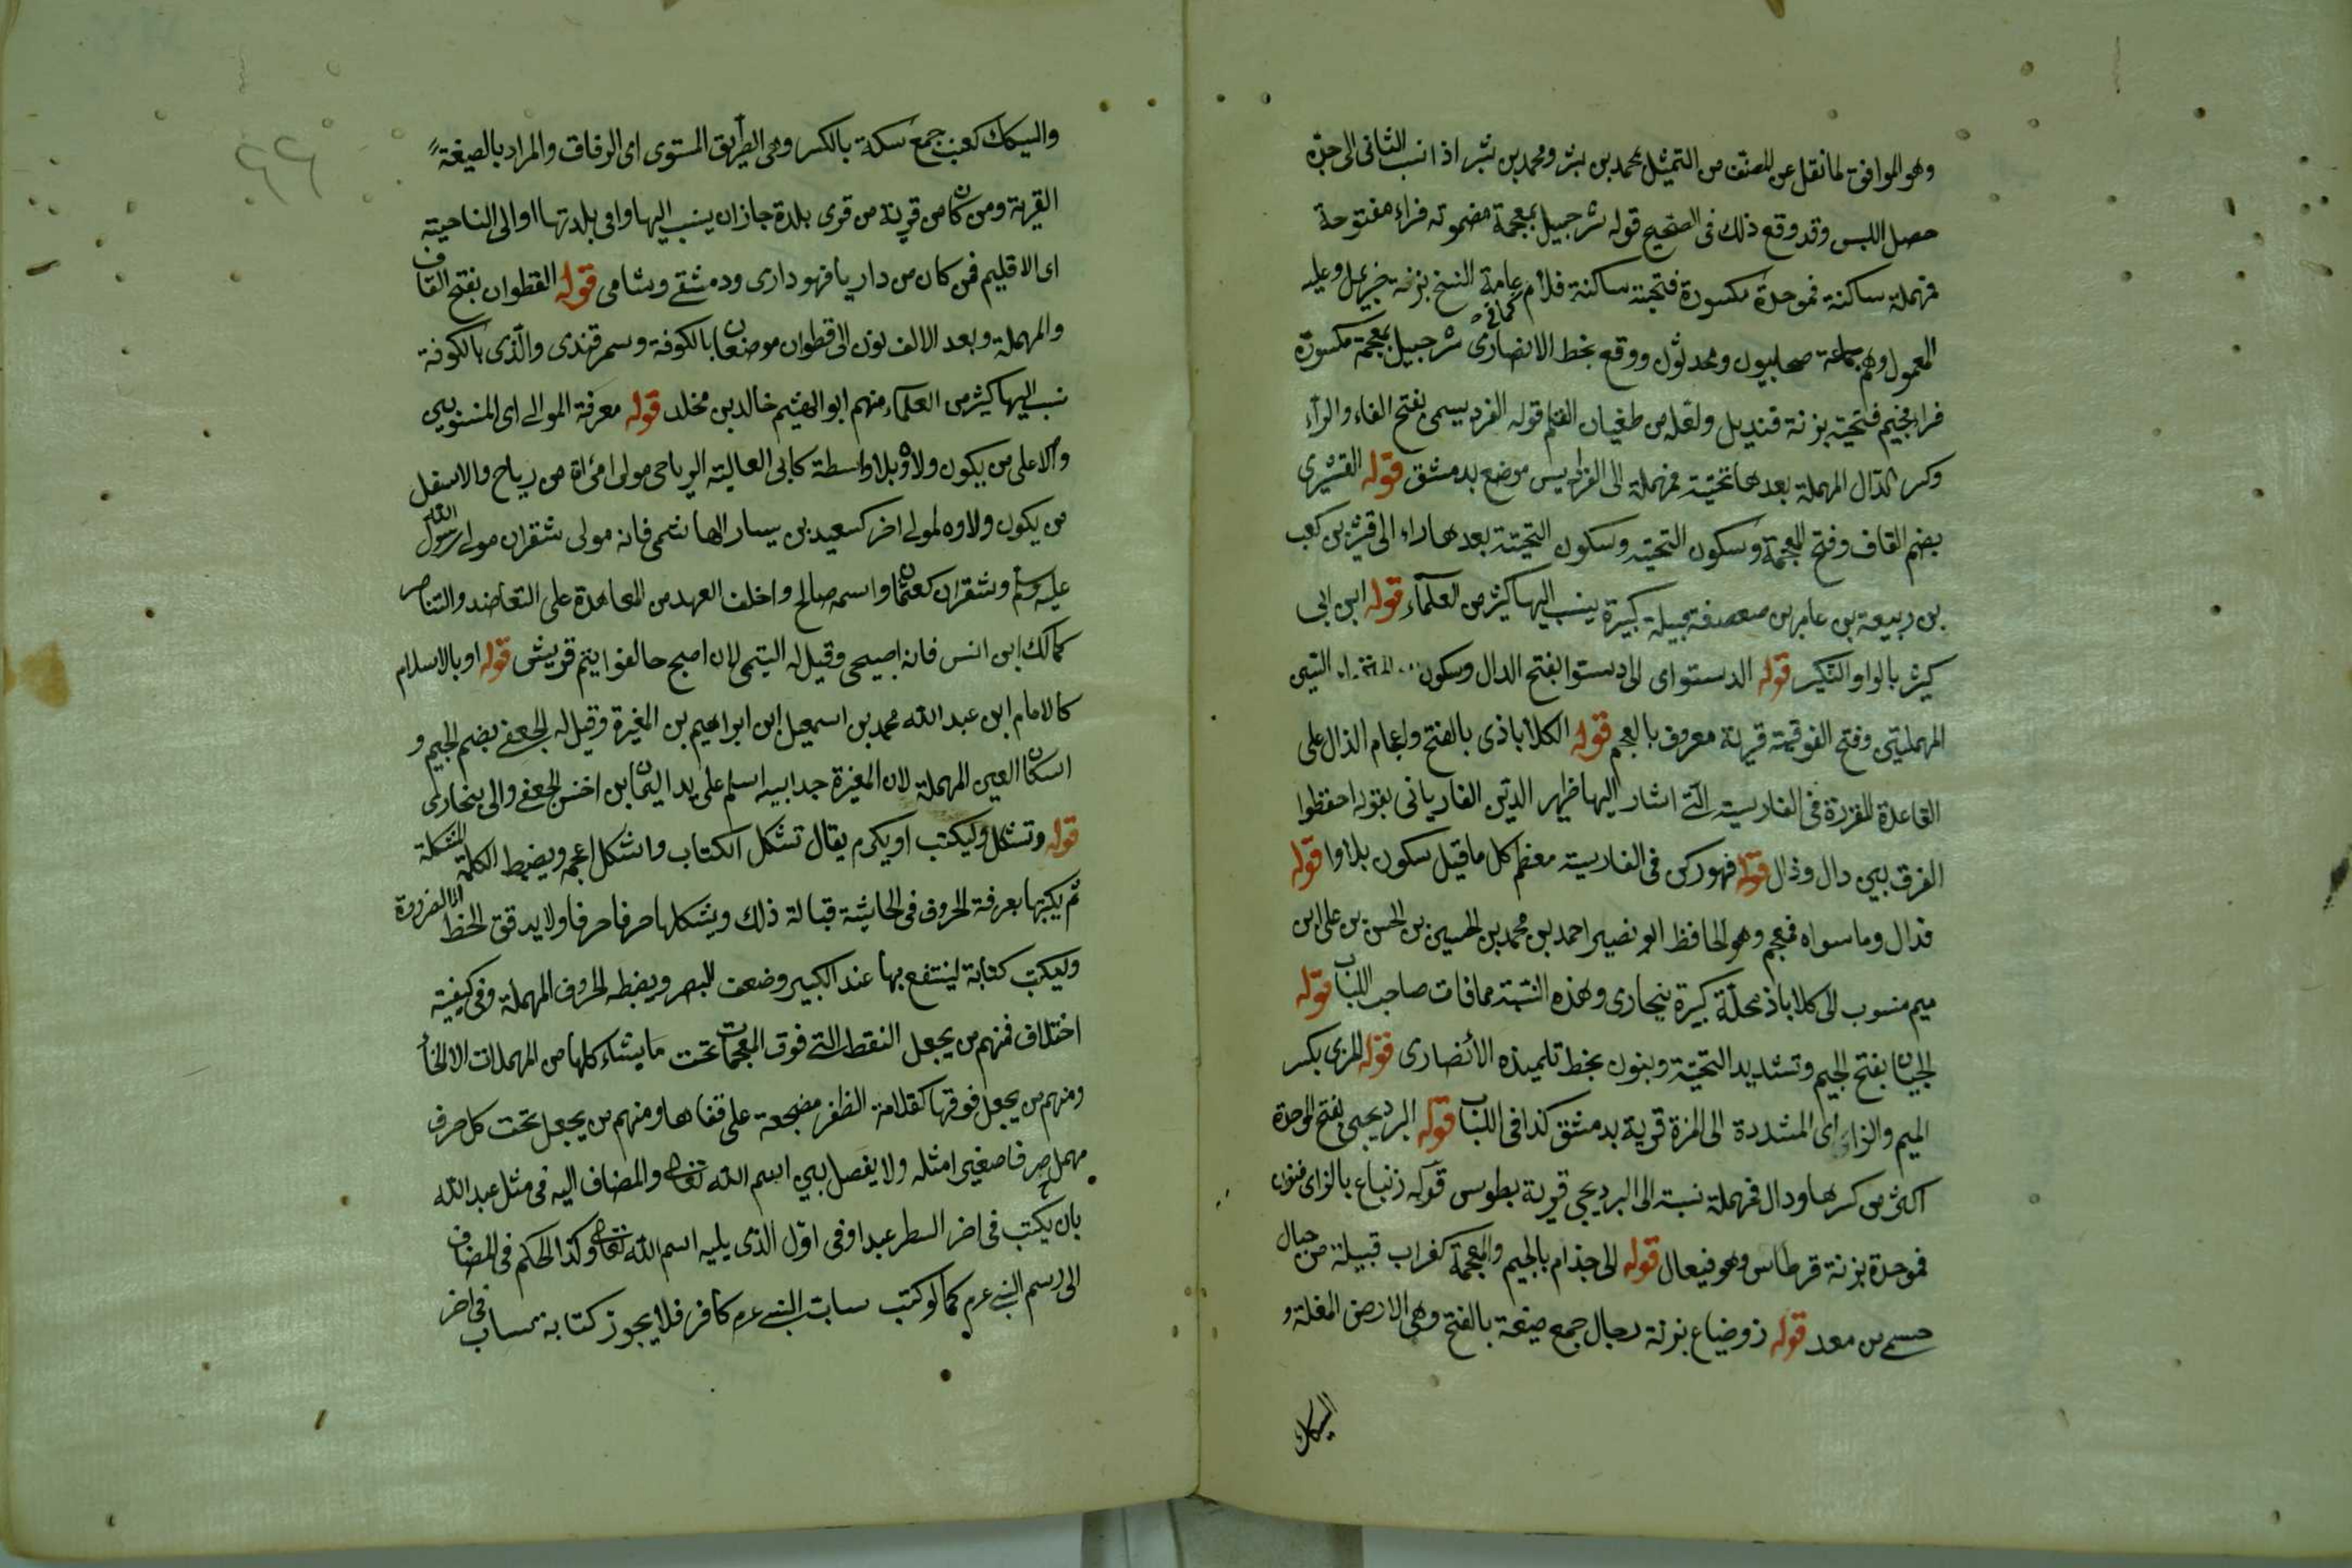 وهو الموافق لما نقل عن المصنف من التمثيل بمحمد بن بشر ومحمد بن بشر اذا نسب الثانى الى جده
حصل اللبس وقد وقع ذلك فى الصحيح قوله شرحبيل بمعجمة مضمومة فراء مفتوحة
فمهملة ساكنة فموحدة مكسورة فتحتية ساكنة فلام عامة النسخ بزنة خزعيل وعليه
المعمول وهم جماعة صحابيون ومحدثون ووقع بخط الانصارى كما فى شرجبيل بمعجمة مكسورة
فراء فجيم فتحتية بزنة قنديل ولعله من طغيان القلم قوله الفرديسى بفتح الفاء والراء
وكسر الدال المهملة بعدها تحتية فمهملة الى الفراديس موضع بدمشق قوله القشيرى
بضم القاف وفتح المعجمة وسكون التحتية وسكون التحتية بعدها راء الى قشير بن كعب
بن ربيعة بن عامر بن صعصعة قبيلة كبيرة ينسب اليها كثير من العلماء قوله ابن ابى
كثير بالواو التكير قوله الدستواى الى دستوا بفتح الدال وسكون السين
المهملتين وفتح الفوقية قرية معروف بالعجم قوله الكلاباذى بالفتح واعجام الذال على
القاعدة المقررة فى الفارسية التى اشار اليها ظهير الدين الفاريانى بقوله احفظوا
الفرق بين دال وذال قوله فهو ركن فى الفارسية معظم كل ما قبل سكون بلا وا قوله
فدال وما سواه فمعجم وهو الحافظ ابو نصير احمد بن محمد بن الحسين بن الحسن بن على ابن
ميم منسوب الى كلاباذ محلة كبيرة ببخارى وهذه النسبة مما فات صاحب اللباب قوله
الجيان بفتح الجيم وتشديد التحتية وبنون بخط تلميذه الأنصارى قوله المزى بكسر
الميم والزاء اى المشددة الى المزة قرية بدمشق كذا فى اللباب قوله البرديجى بفتح الموحدة
اكثر من كسرها ودال فمهملة نسبة الى البرديجى قرية بطوس قوله زنباع بالزاى فنون
فموحدة بزنة قرطاس وهو فيعال قوله الى جذام بالجيم والمعجمة كغراب قبيلة من جبال
حسمى من معد قوله زوضياع بزنة رجال جمع ضيعة بالفتح وهى الارض المغلة و
السكاك
والسكاك كعنب جمع سكة بالكسر وهى الطريق المستوى اى الزقاق والمراد بالصيغة
القرية ومن كان من قرية من قرى بلدة جاز ان ينسب اليها وافى بلدتها او الى الناحية
اى الاقليم فمن كان من داريا فهو دارى ودمشقى وشامى قوله القطوان بفتح القاف
والمهملة وبعد الالف نون الى قطوان موضعان بالكوفة وسمرقندى والذى بالكوفة
نسب اليها كثير من العلماء منهم ابو الهيثم خالد بن مخلد قوله معرفة الموالى اى المنسوبين
والاعلى من يكون ولاؤه بلا واسطة كابى العالية الرياحى مولى امرأة من رياح والاسفل
من يكون ولاوه لمولى اخر كسعيد بن يسار الهاشمى فانه مولى شقران مولى رسول الله
عليه وسلم وشقران كعثمان واسمه صالح واخلف العهد من المعاهدة على التعاضد والتناصر
كمالك ابن انس فانه اصبحى وقيل له التيمى لان اصبح حالفوا يتم قريش قوله او بالاسلام
كالامام ابن عبد الله محمد بن اسمعيل ابن ابراهيم بن المغيرة وقيل له الجعفى بضم الجيم و
اسكان العين المهملة لان المغيرة جد ابيه اسلم على يد اليمان ابن اخنس الجعفى والى بخارى
قوله وتشكل وليكتب او يكره يقال تشكل الكتاب واشكل اعجمه ويضبط الكلمة المشكلة
ثم يكتبها بعرفة الحروف فى الحاشية قبالة ذلك ويشكلها حرفا حرفا ولا يدقق الخط الا لضرورة
وليكتب كتابة لينتفع بها عند الكبير وضعف البصر ويضبطه الحروف المهملة وفى كيفية
اختلاف فمنهم من يجعل النقطة التى فوق المعجمات تحت ما يشاء كلها من المهملات الا الحا
ومنهم من يجعل فوقها كقلامة الظفر مضجعة على قفاها ومنهم من يجعل تحت كل حرف
مهمل حرفا صغيرا مثله ولا يفصل بين اسم الله تعالى والمضاف اليه فى مثل عبد الله
بان يكتب فى اخر السطر عبد اوفى اول الذى يليه اسم الله تعالى وكذا الحكم فى المضاف
الى رسم النبى عرم كما لو كتب ساب النبى عرم كافر فلا يجوز كتابة ساب فى اخر